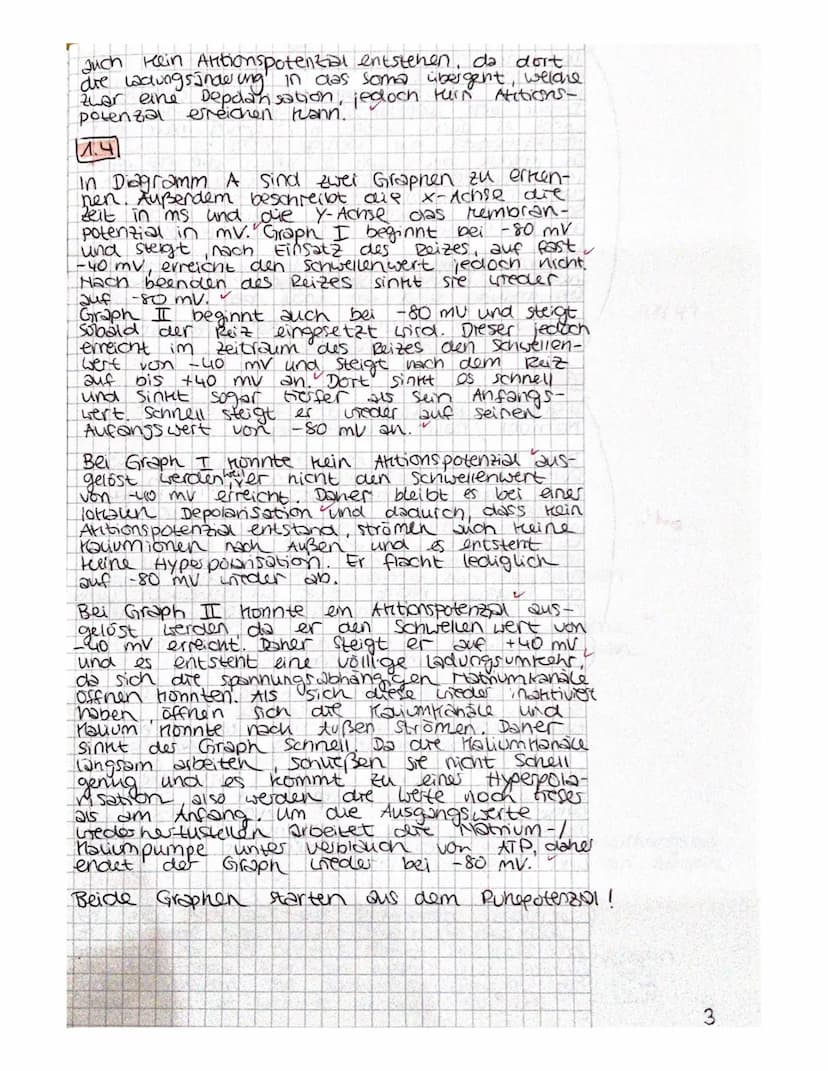 auch kein Aktionspotenzial entstehen, da dort
die Ladungsänderung in das Soma übergeht, welche
zwar eine Depolarisation, jedoch kein Aktions-
potenzial erreichen kann.
1.4
In Diagramm A sind zwei Graphen zu erken-
nen. Außerdem beschreibt die x-Achse die
Zeit in ms und die Y-Achse das Membran-
potenzial in mV. Graph I beginnt bei -80 mV
und steigt, nach Einsatz des Reizes, auf fast
-40 mV, erreicht den Schwellenwert jedoch nicht.
Nach beenden des Reizes sinkt sie wieder
auf -80 mV.
Graph II beginnt auch bei -80 mV und steigt
sobald der Reiz eingesetzt wird. Dieser jedoch
erreicht im Zeitraum des Reizes den Schwellen-
wert von -40 mV und steigt nach dem Reiz
auf bis +40 mV an. Dort sinkt es schnell
und sinkt sogar tiefer als sein Anfangs-
wert. Schnell steigt er wieder auf seinen
Anfangswert von -80 mV an.
Bei Graph I konnte kein Aktionspotenzial aus-
gelöst werden, weil er nicht den Schwellenwert
von -40 mV erreicht. Daher bleibt es bei einer
lokalen Depolarisation und dadurch, dass kein
Aktionspotenzial entstand, strömen auch keine
Kaliumionen nach Außen und es entsteht
keine Hyperpolarisation. Er flacht lediglich
auf -80 mV wieder ab.
Bei Graph II konnte ein Aktionspotenzial aus-
gelöst werden, da er den Schwellenwert von
-40 mV erreicht. Daher steigt er auf +40 mV
und es entsteht eine völlige Ladungsumkehr,
da sich die spannungsabhängigen Natriumkanäle
öffnen konnten. Als sich diese wieder inaktiviert
haben, öffnen sich die Kaliumkanäle und
Kalium konnte nach Außen strömen. Daher
sinkt der Graph schnell. Da die Kaliumkanäle
langsam arbeiten, schließen sie nicht Schell
genug und es kommt zu einer Hyperpola-
risation, also werden die Werte noch tiefer
als am Anfang. Um die Ausgangswerte
wiederherzustellen arbeitet die Natrium-/
Kaliumpumpe unter Verbrauch von ATP, daher
endet der Graph wieder bei -80 mV.
Beide Graphen starten aus dem Ruhepotenzial!
3